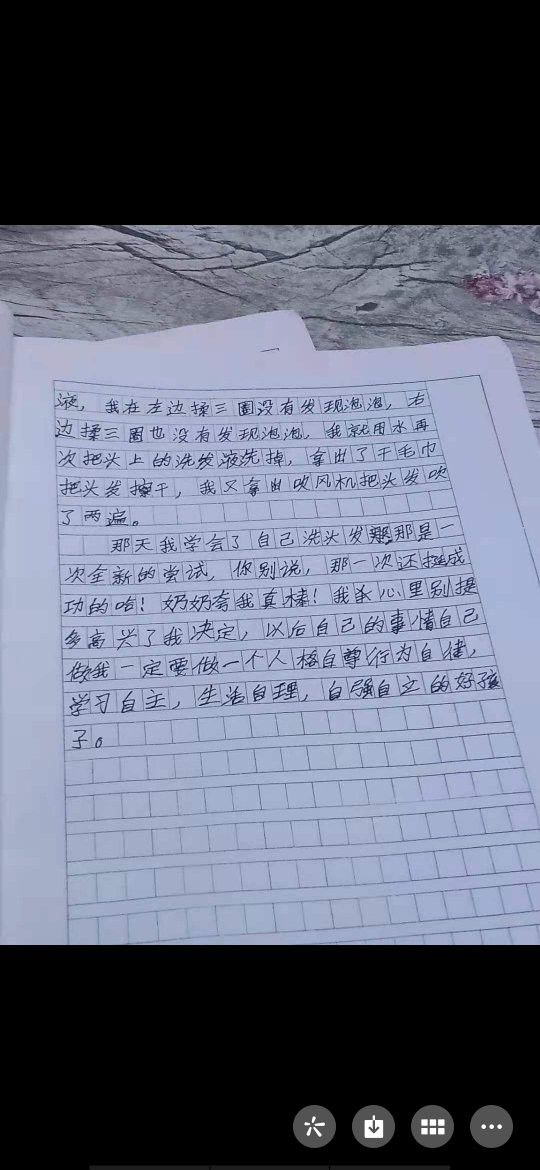 液，我在左边揉三圈没有发现泡泡，右
边揉三圈也没有发现泡泡，我就用水再
次把头上的洗发液洗掉，拿出了干毛巾
把头发擦干，我又拿出吹风机把头发吹
了两遍。
那天我学会了自己洗头发那是一
次全新的尝试，你别说，那一次还挺成
功的哈！奶奶夸我真棒！我心里别提
多高兴了我决定，以后自己的事情自己
做我一定要做一个人格自尊行为自律，
学习自主，生活自理，自强自立的好孩
子。